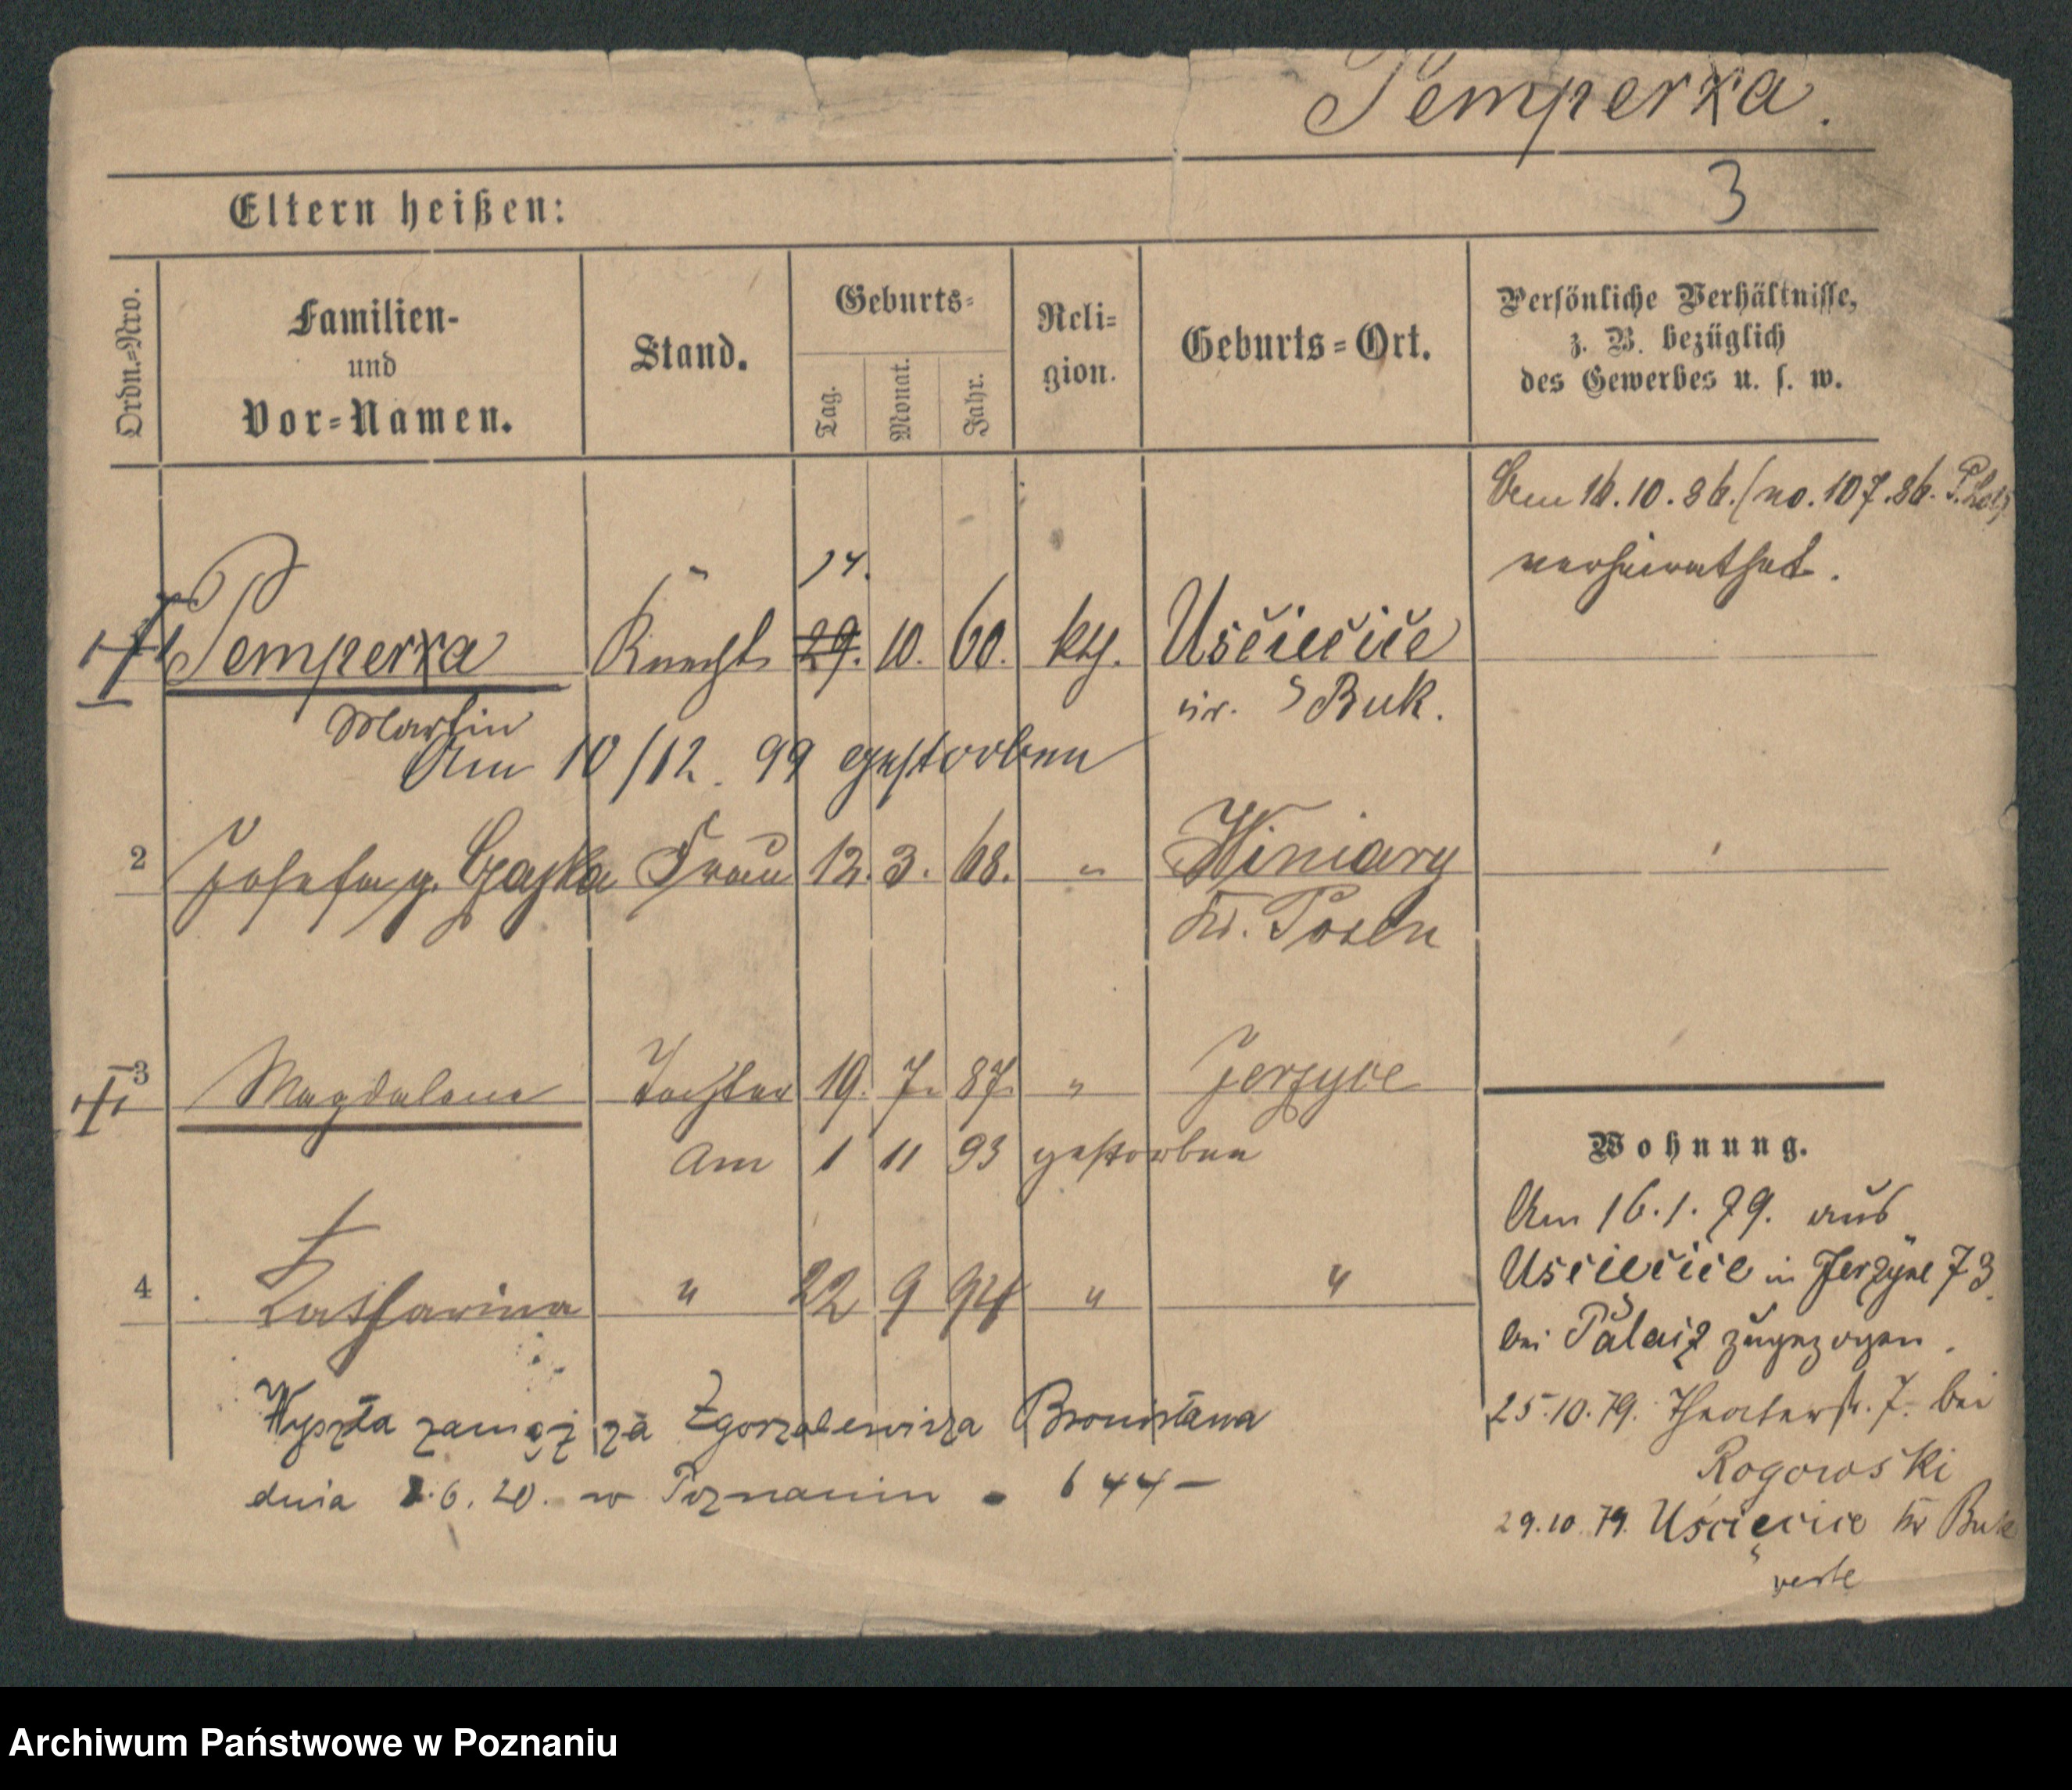 Pemperxa.
3
Eltern heißen:
Ordn.-Nro.
Familien-
und
Vor-Namen.
Stand.
Geburts-
Tag.
Monat.
Jahr.
Reli-
gion.
Geburts-Ort.
Persönliche Verhältnisse,
z. B. bezüglich
des Gewerbes u. s. w.
Am 16.10.86. (no. 107.86.
verheirathet.
14.
1 Pemperxa Knecht 29. 10. 60. kth. Uscieciče
Martin Kr. Buk.
Am 10/12. 99 gestorben
2 Josefa g. Gajka Frau 12. 3. 68. " Winiary
Kr. Posen
3 Magdalena Tochter 19. 7. 87. " Jerzyce
Am 1 11 93 gestorben
4 Katharina " 22 9 94 " "
Wyszła zamąż za Zgorzalewicza Bronisława
dnia 2.6.20. w Poznaniu - 644 -
Wohnung.
Am 16.1.79. aus
Usciecice in Jerzyce 73
bei Palacz zugezogen.
25.10.79. Theaterstr. 7. bei
Rogowski
29.10.79. Uściecice Kr Buk
verte
Archiwum Państwowe w Poznaniu